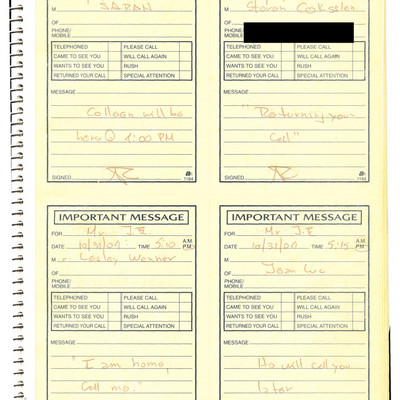 M SARAH
OF
PHONE/
MOBILE
TELEPHONED PLEASE CALL
CAME TO SEE YOU WILL CALL AGAIN
WANTS TO SEE YOU RUSH
RETURNED YOUR CALL SPECIAL ATTENTION
MESSAGE
Colleen will be
here @ 1:00 PM
SIGNED
1184
M
OF
PHONE/
MOBILE
TELEPHONED PLEASE CALL
CAME TO SEE YOU WILL CALL AGAIN
WANTS TO SEE YOU RUSH
RETURNED YOUR CALL SPECIAL ATTENTION
MESSAGE
"Returning your
call"
SIGNED
1184
IMPORTANT MESSAGE
FOR Mr. J.E
DATE 10/31/04 TIME 5:10 A.M. P.M.
M Lesley Wexner
OF
PHONE/
MOBILE
TELEPHONED PLEASE CALL
CAME TO SEE YOU WILL CALL AGAIN
WANTS TO SEE YOU RUSH
RETURNED YOUR CALL SPECIAL ATTENTION
MESSAGE
"I am home,
Call me."
IMPORTANT MESSAGE
FOR Mr. J.E
DATE 10/31/04 TIME 5:15 A.M. P.M.
M
OF Jean Luc
PHONE/
MOBILE
TELEPHONED PLEASE CALL
CAME TO SEE YOU WILL CALL AGAIN
WANTS TO SEE YOU RUSH
RETURNED YOUR CALL SPECIAL ATTENTION
MESSAGE
He will call you
later